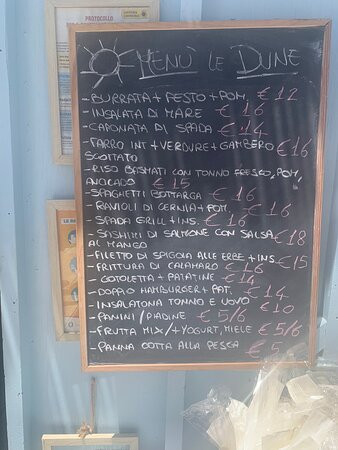 PROTOCOLLO
MENÙ LE DUNE
-BURRATA + PESTO + POM. € 12
-INSALATA DI MARE € 16
-CAPONATA DI SPADA € 14
-FARRO INT + VERDURE + GAMBERO € 16
SCOTTATO
-RISO BASMATI CON TONNO FRESCO, POM,
AVOCADO € 15
-SPAGHETTI BOTTARGA € 16
-RAVIOLI DI CERNIA + POM. € 16
-SPADA GRILL + INS. € 16
-SASHIMI DI SALMONE CON SALSA € 18
AL MANGO
-FILETTO DI SPIGOLA ALLE ERBE + INS € 15
-FRITTURA DI CALAMARO € 16
-COTOLETTA + PATATINE € 14
-DOPPIO HAMBURGER + PAT. € 14
-INSALATONA TONNO E UOVO € 10
-PANINI/PIADINE € 5/6
-FRUTTA MIX/+YOGURT, MIELE € 5/6
-PANNA COTTA ALLA PESCA € 5